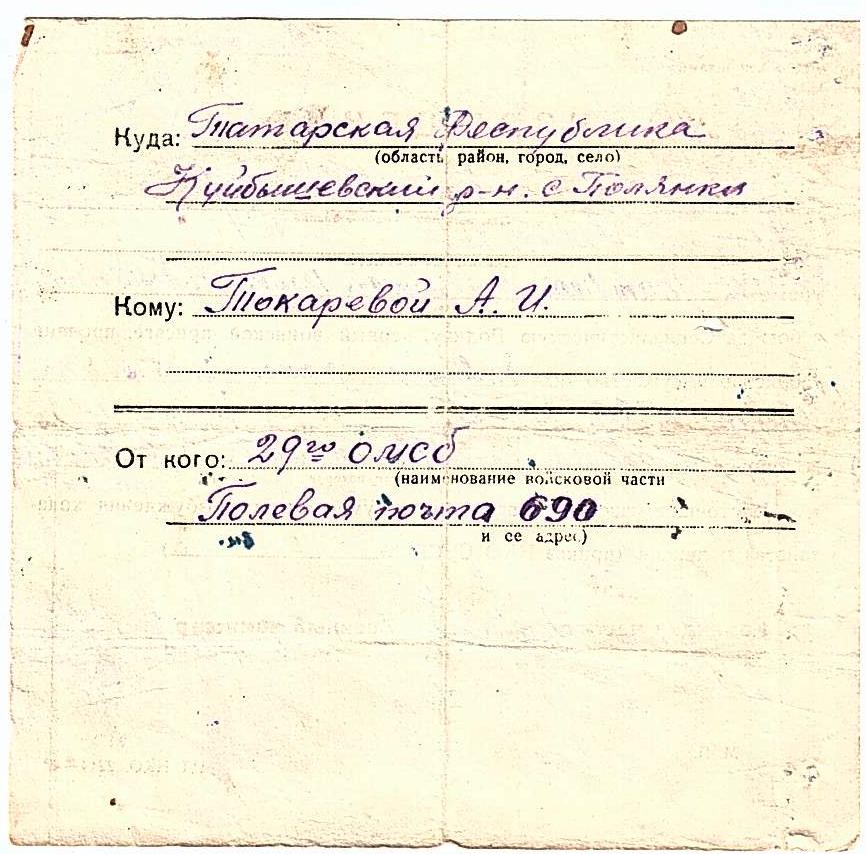 Куда: Татарская Республика
(область, район, город, село)
Куйбышевский р-н. с Полянки
Кому: Токаревой А. И.
От кого: 29го омсб
(наименование войсковой части
Полевая почта 690
и ее адрес)